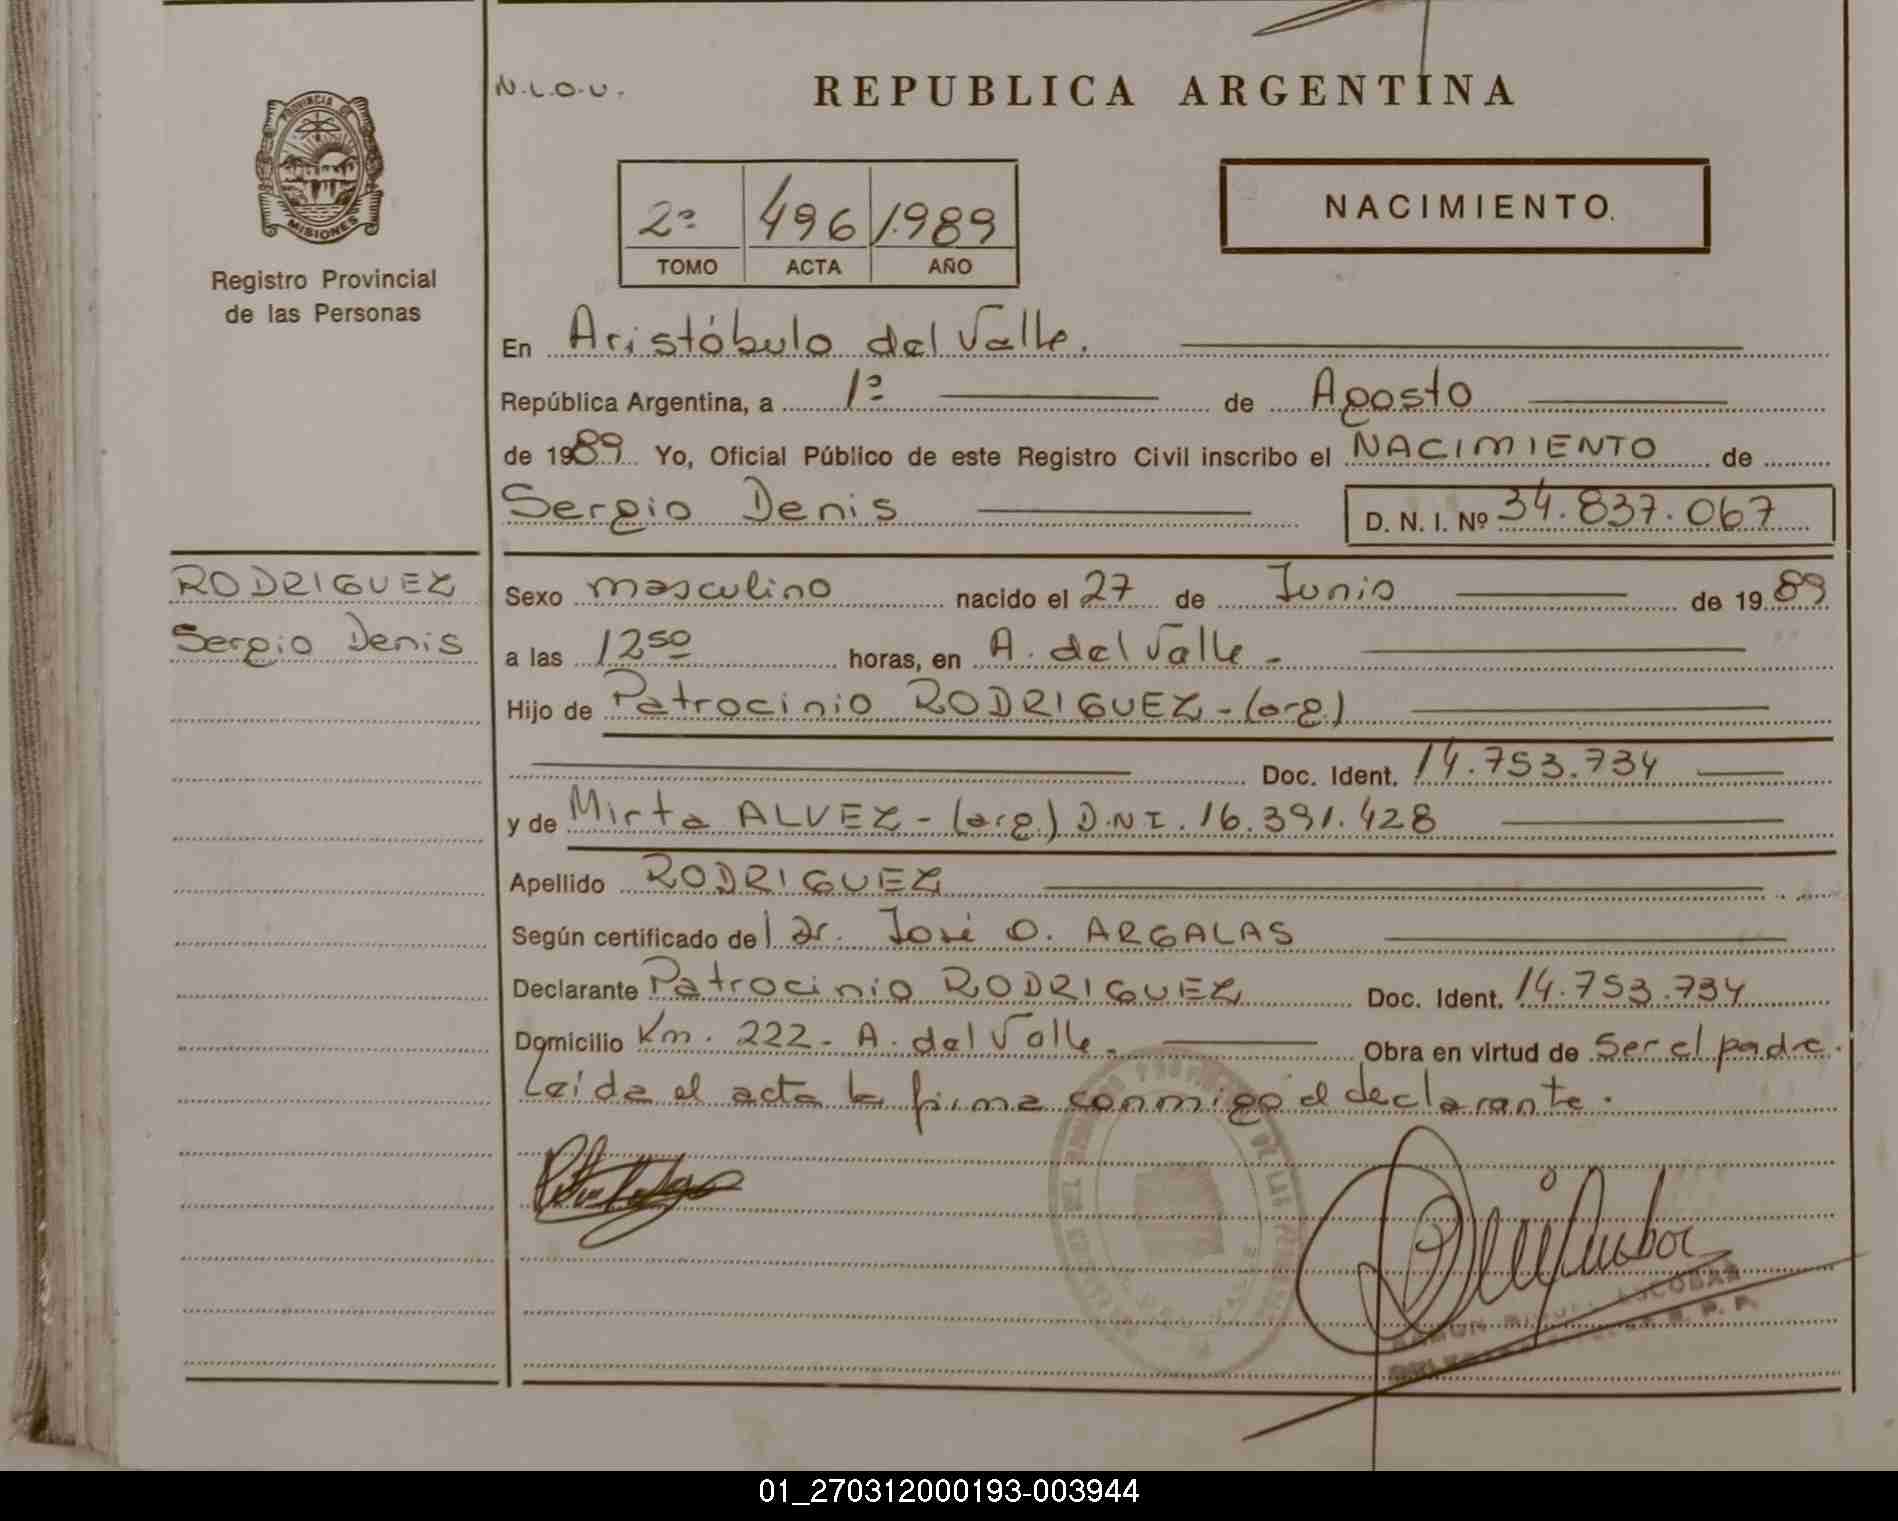 N.L.O.U.
REPUBLICA ARGENTINA
PROVINCIA DE
MISIONES
Registro Provincial
de las Personas
2º 496 1.989
TOMO ACTA AÑO
NACIMIENTO.
En Aristóbulo del Valle.
República Argentina, a 1º de Agosto
de 1989 Yo, Oficial Público de este Registro Civil inscribo el NACIMIENTO de
Sergio Denis D. N. I. Nº 34.837.067
RODRIGUEZ
Sergio Denis
Sexo masculino nacido el 27 de Junio de 1989
a las 12 50 horas, en A. del Valle -
Hijo de Patrocinio RODRIGUEZ - (arg.)
Doc. Ident. 14.753.734
y de Mirta ALVEZ - (arg.) D.N.I. 16.391.428
Apellido RODRIGUEZ
Según certificado del Dr. José O. ARGALAS
Declarante Patrocinio RODRIGUEZ Doc. Ident. 14.753.734
Domicilio Km. 222 - A. del Valle. Obra en virtud de Ser el padre.
Leída el acta la firma conmigo el declarante.
ESCOBAR
01_270312000193-003944